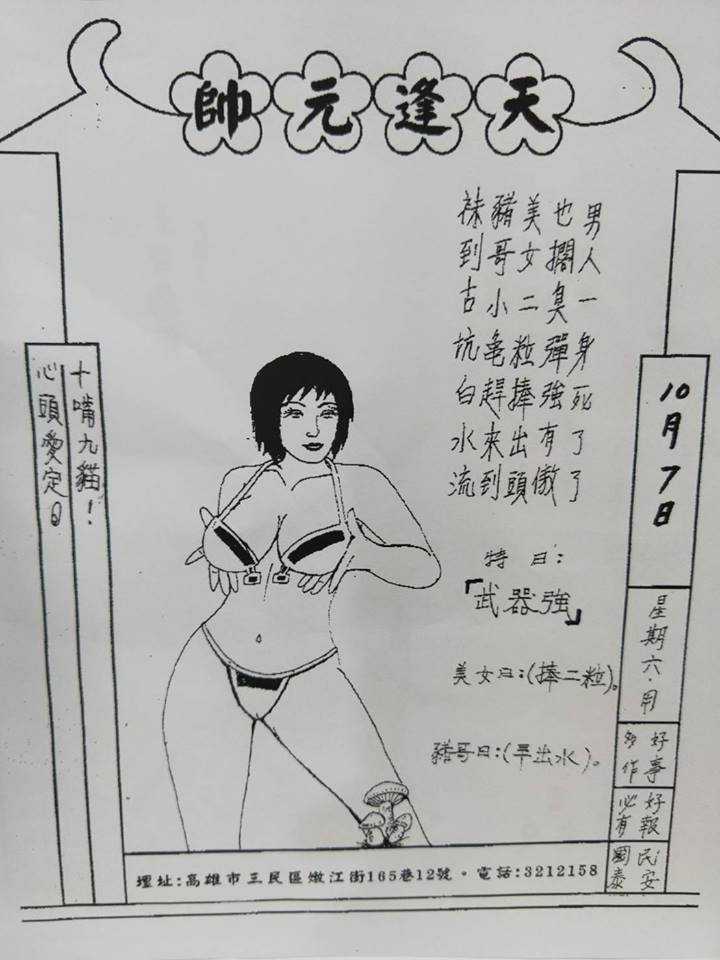 天逢元帥
男人一身死了了
也擱臭彈強有傲
美女二粒捧出頭
豬哥小龜趕來到
襪到古坑白水流
特曰：
「武器強」
美女曰：(捧二粒)。
豬哥曰：(早出水)。
10月7日
星期六．用
好事多作
好報必有
民安國泰
十嘴九貓！
心頭愛定曰
壇址：高雄市三民區嫩江街165巷12號。電話：3212158